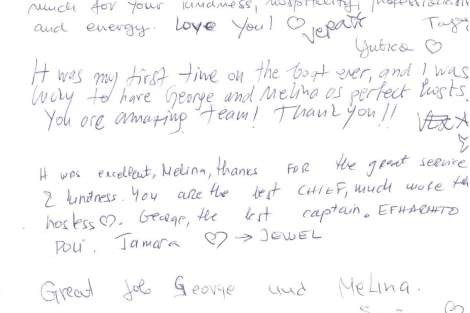 much for your kindness, hospitality, professionalism
and energy. Love you! ♡
♡
It was my first time on the boat ever, and I was
lucky to have George and Melina as perfect hosts.
You are amazing team! Thank you!!
It was excellent, Melina, thanks FOR the great service
& kindness. You are the best CHIEF, much more than
hostess ♡. George, the best captain. EFHARISTO
POLI. Tamara ♡ → JEWEL
Great job George and Melina.